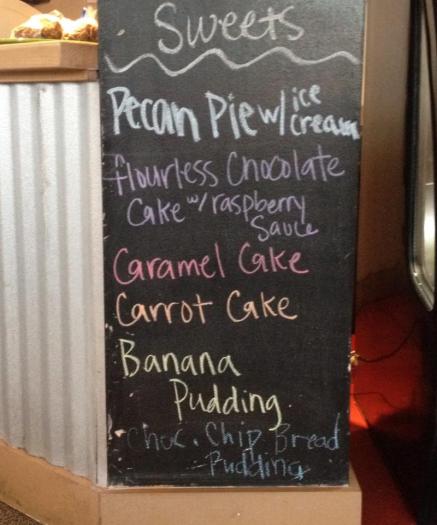 Sweets
Pecan Pie w/ ice cream
flourless Chocolate
Cake w/ raspberry
Sauce
Caramel Cake
Carrot Cake
Banana
Pudding
Choc. Chip Bread
Pudding